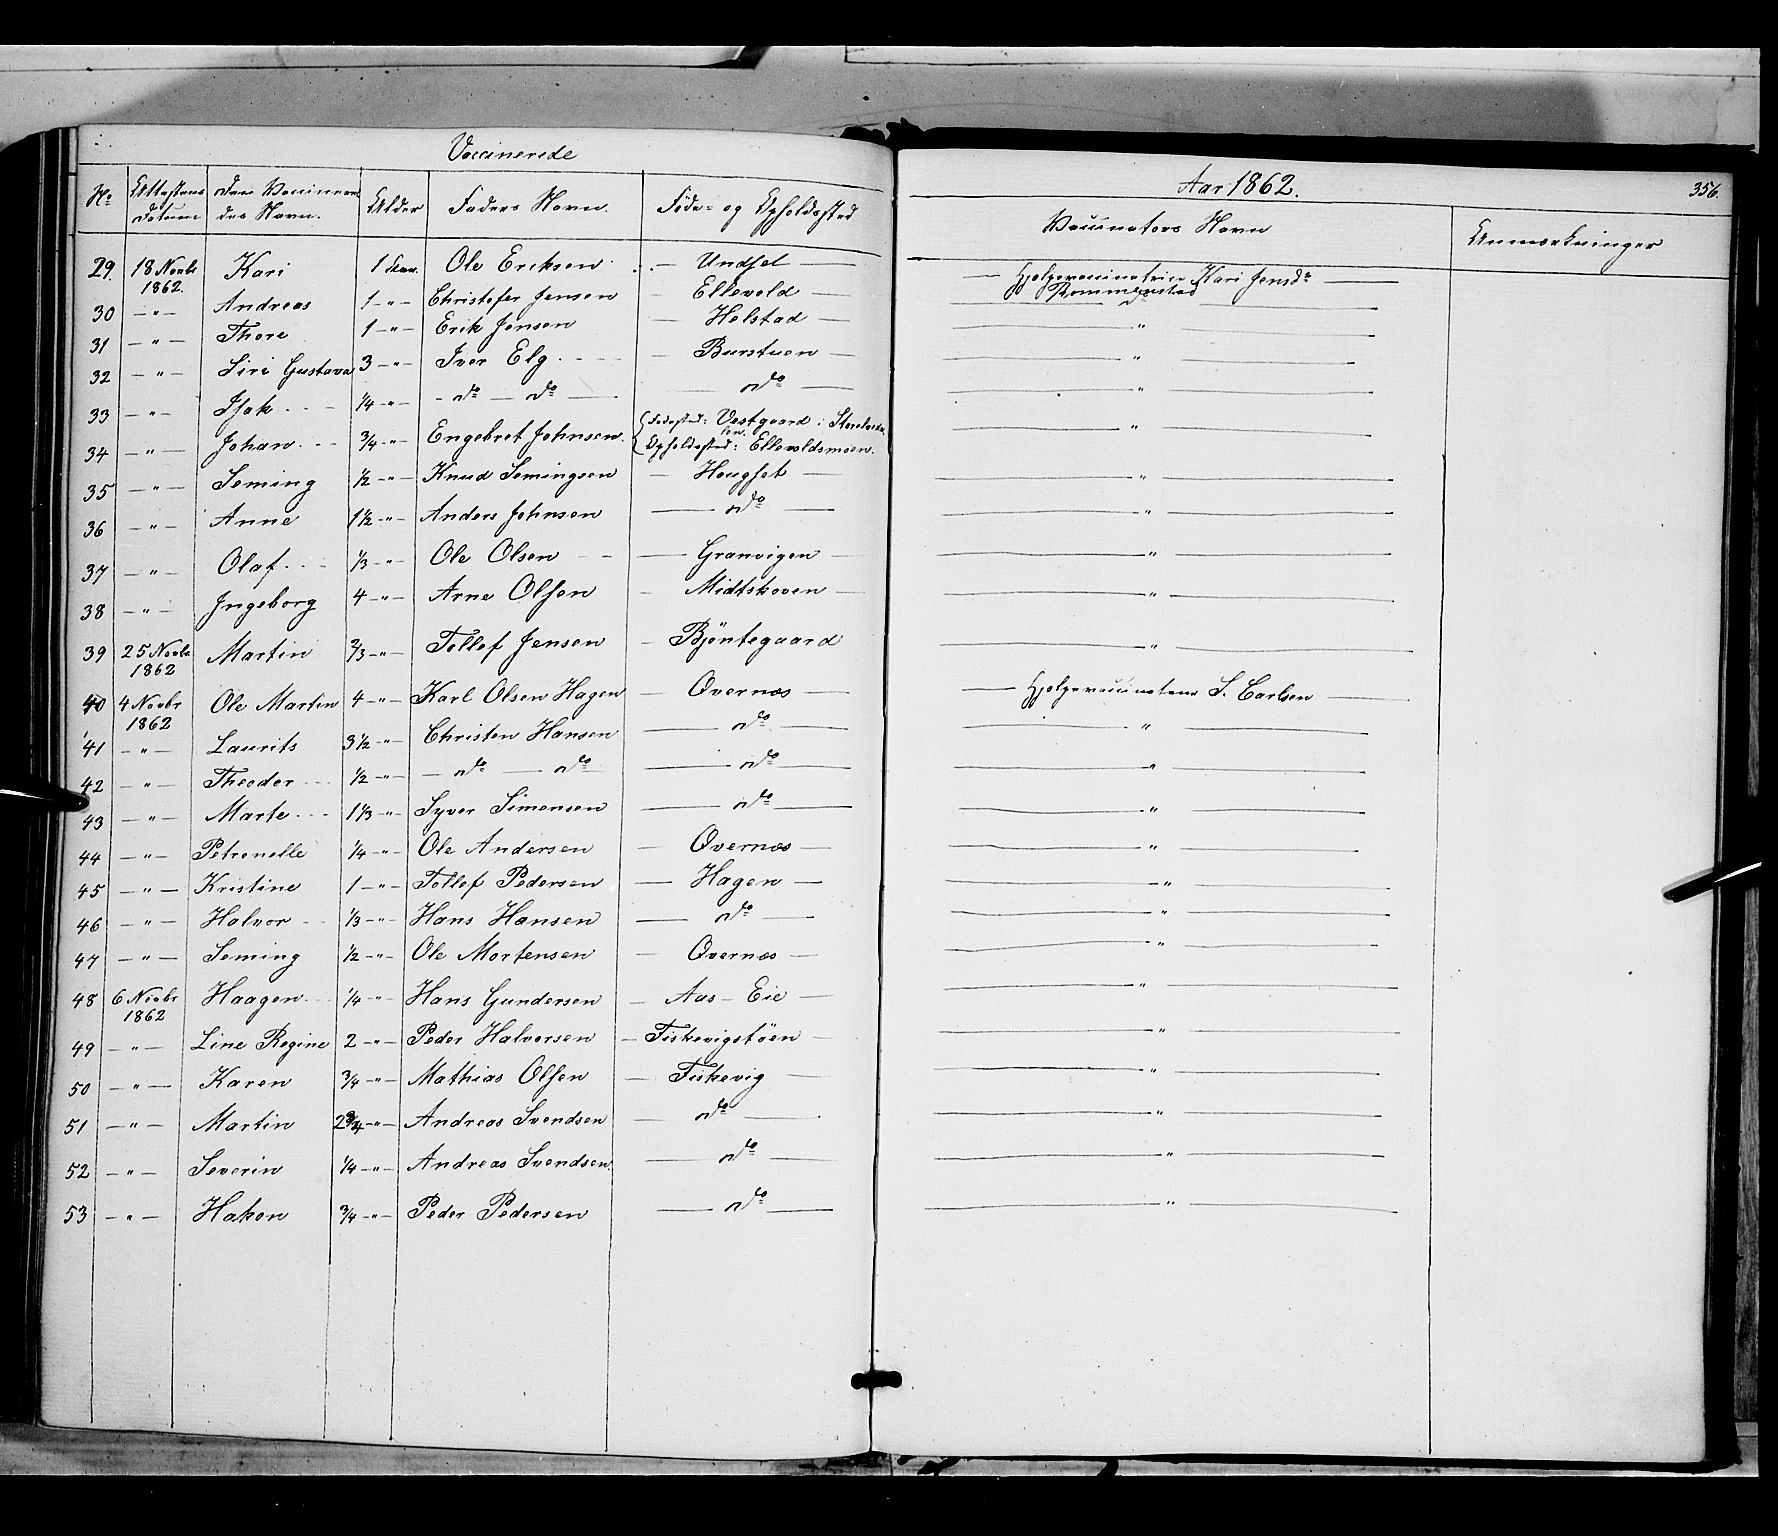 Vaccinerede
Aar 1862.
356.
No Attestens Datum den Vaccineredes Navn. Alder Faders Navn. Føde- og Opholdssted Vaccinators Navn Anmærkninger
29. 18 Novbr 1862. Kari 1 Ole Eriksen — Undset — Hjelpevaccinatrice Kari Jensdr
30 — " — Andreas 1 — " — Christofer Jensen — Ellevold — "
31 — " — Thore 1 — " — Erik Jensen — Holstad — "
32 — " — Siri Gustava 3 — " — Iver Elg — Burstuen — "
33 — " — Isak 1/4 — " — do — do — do — "
34 — " — Johan 3/4 — " — Engebret Johnsen {Fødested: Vestgaard i Storelvedalen. {Opholdssted: Ellevoldsmoen. — "
35 — " — Seming 1/2 — " — Knud Semingsen — Hougset — "
36 — " — Anne 1 1/2 — " — Anders Johnsen — do — "
37 — " — Olaf 1/3 — " — Ole Olsen — Granvigen — "
38 — " — Ingeborg 4 — " — Arne Olsen — Midtskoven — "
39 25 Novbr 1862 Martin 2/3 — " — Tollef Jensen — Bjøntegaard — "
40 4 Novbr 1862 Ole Martin 4 — " — Karl Olsen Hagen — Øvernæs — Hjelpevaccinateur S. Carlsen
41 — " — Laurits 3 1/2 — " — Christen Hansen — do — "
42 — " — Theodor 1/2 — " — do — do — do — "
43 — " — Marte 1 1/3 — " — Syver Simensen — do — "
44 — " — Petronelle 1/4 — " — Ole Andersen — Øvernæs — "
45 — " — Kristine 1 — " — Tollef Pedersen — Hagen — "
46 — " — Halvor 1/3 — " — Hans Hansen — do — "
47 — " — Seming 1/2 — " — Ole Mortensen — Øvernæs — "
48 6 Novbr 1862 Haagen 1/4 — " — Hans Gundersen — Aas-Eie — "
49 — " — Line Regine 2 — " — Peder Halvorsen — Fiskevigstøen — "
50 — " — Karen 3/4 — " — Mathias Olsen — Fiskevig — "
51 — " — Martin 2 3/4 — " — Andreas Svendsen — do — "
52 — " — Severin 1/4 — " — Andreas Svendsen — do — "
53 — " — Hakon 3/4 — " — Peder Pedersen — do — "